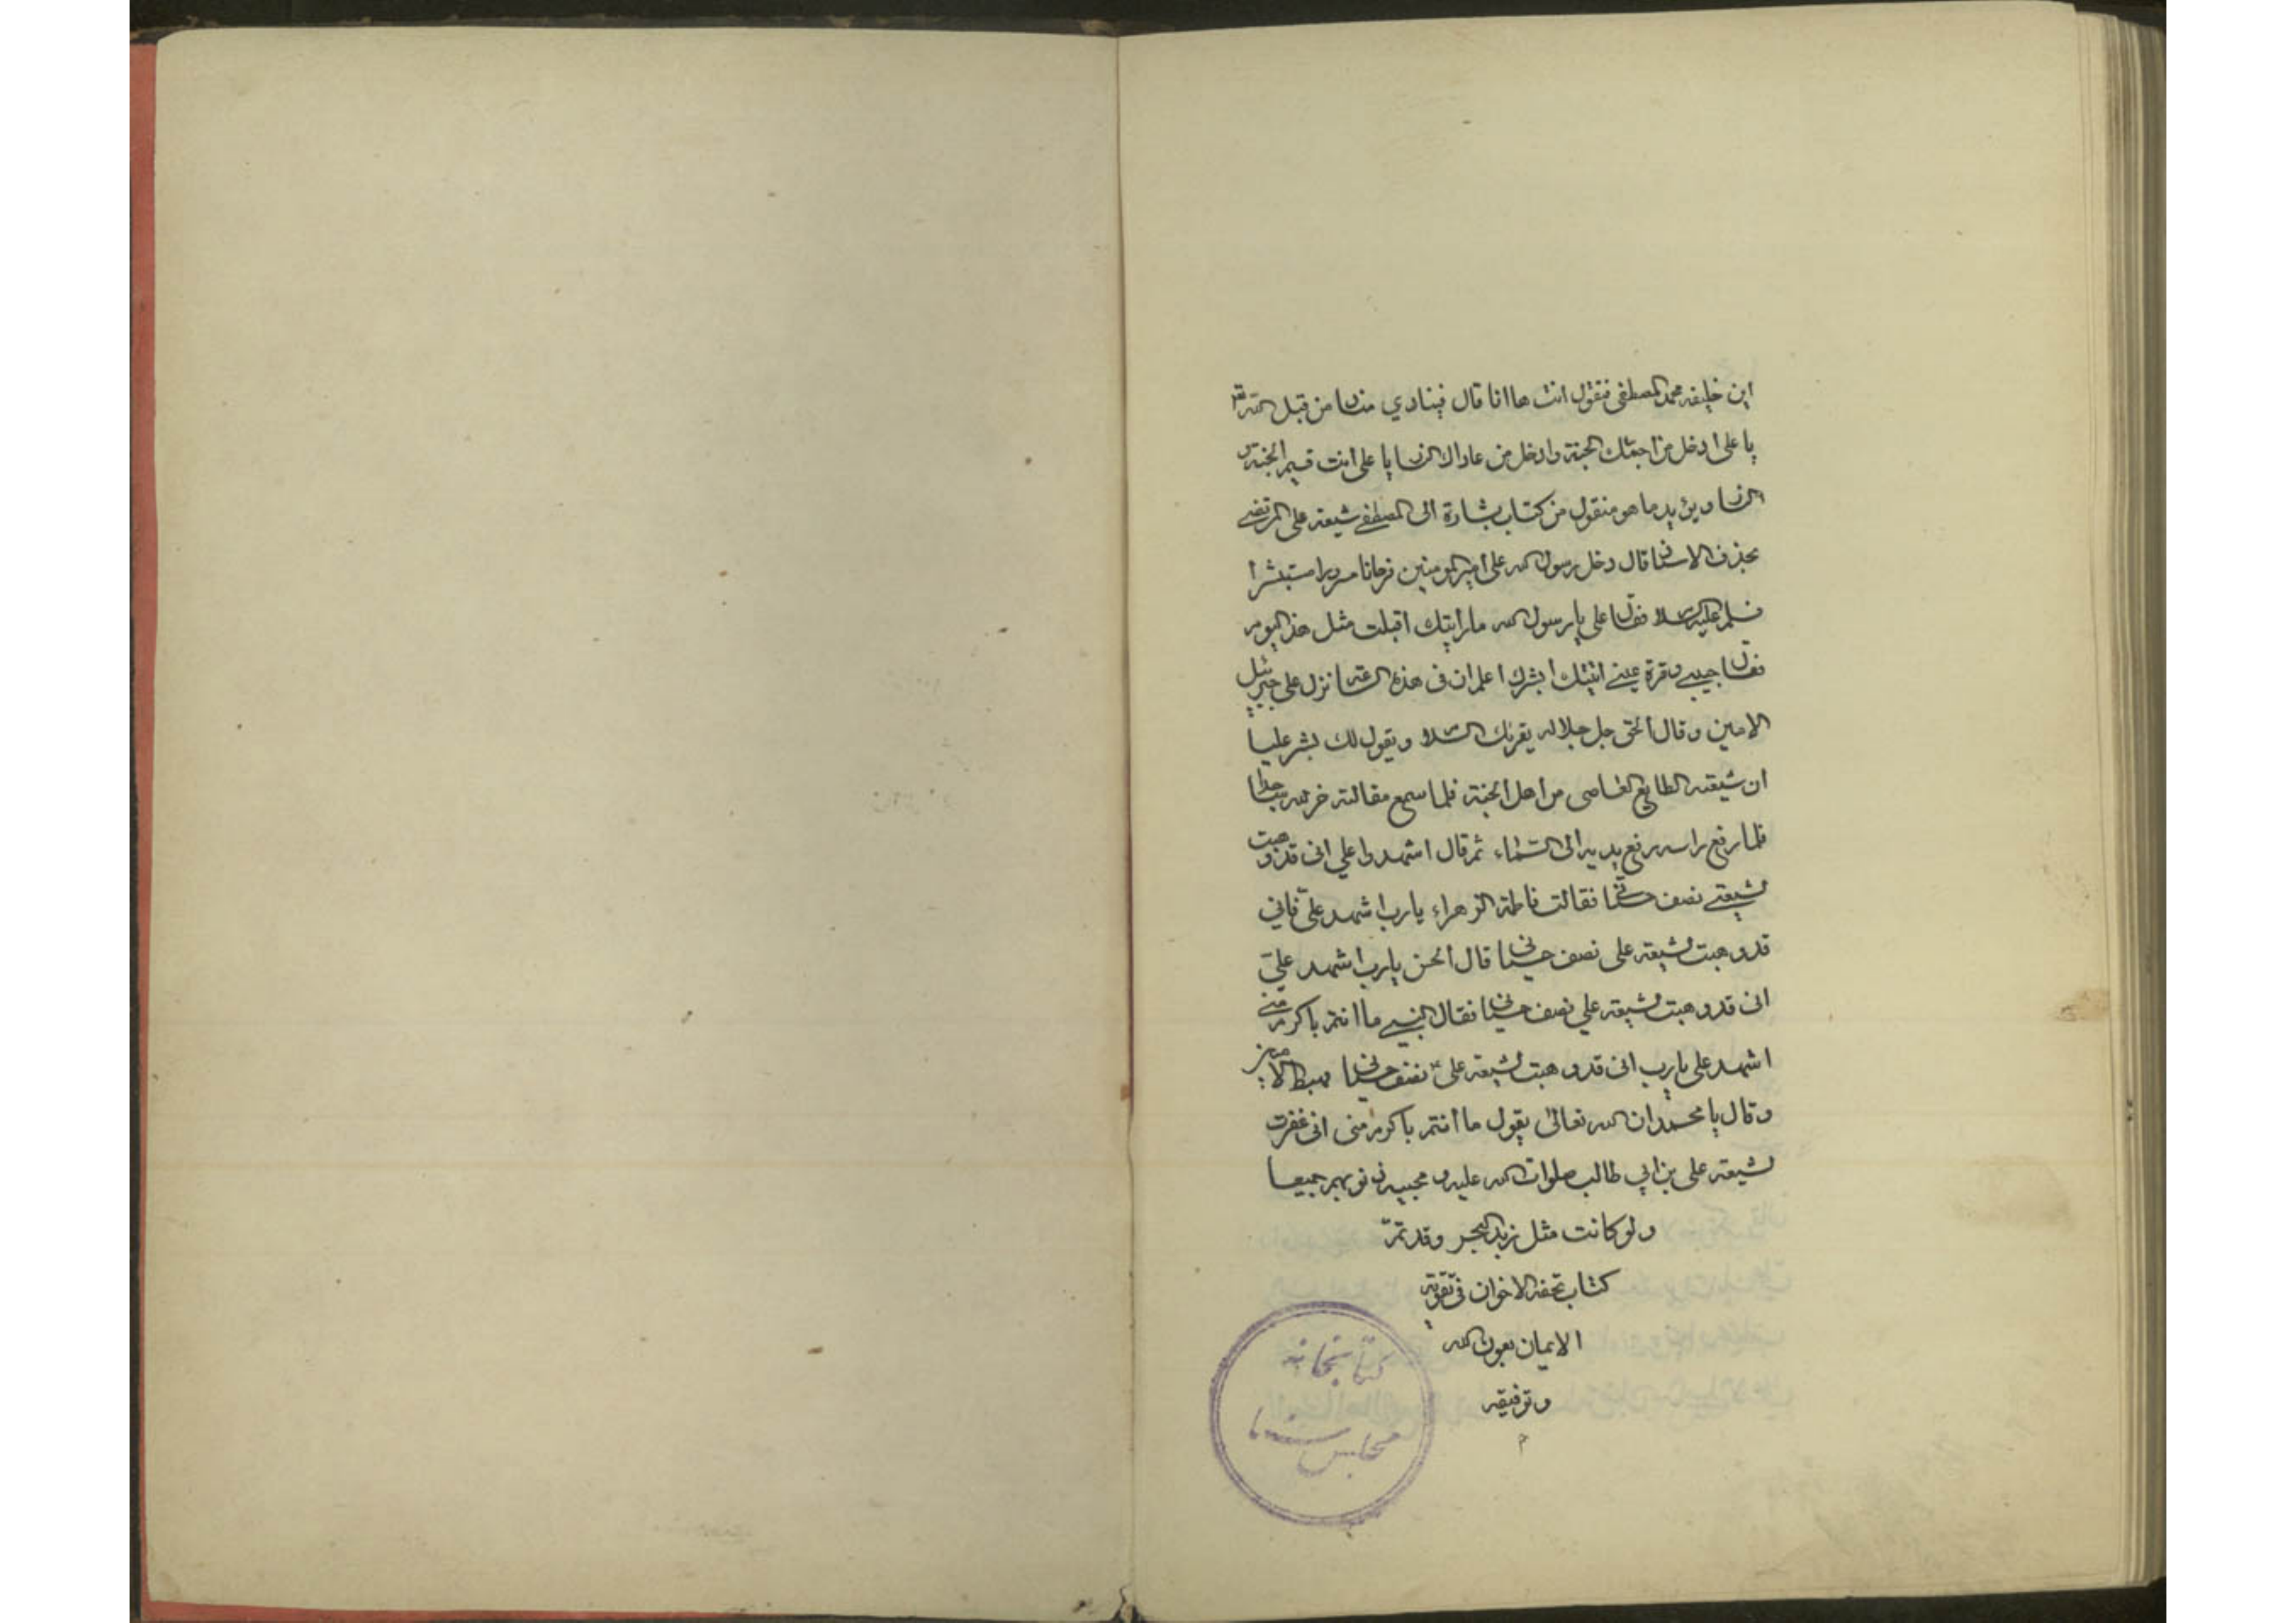 اين خليفه محمد المصطفى فتقول انت ها انا قال فينادي مناد من قبل الله
يا على ادخل من احبّك الجنة وادخل من عاداك النار يا على انت قسيم الجنة و
النار ويؤيد ما هو منقول من كتاب بشارة المصطفى شيعة على المرتضى
بحذف الاسناد قال دخل رسول الله على امير المومنين فرحانا مسرورا مستبشرا
فسلم عليه السلام فقال على يا رسول الله ما رأيتك اقبلت مثل هذا اليوم
فقال حبيبى وقرة عينى اتيتك أبشرك اعلم ان فى هذه الساعة نزل على جبرئيل
الامين وقال الحق جل جلاله يقرئك السلام ويقول لك بشر عليا
ان شيعته الطايع العاصى من أهل الجنة فلما سمع مقالته خر لله ساجدا
فلما رفع راسه رفع يديه الى السّماء ثم قال اشهدوا علي انى قد وهبت
لشيعتى نصف حسناتى فقالت فاطمة الزهراء يا رب اشهد علىّ فاني
قد وهبت لشيعة على نصف حسناتى قال الحسن يا رب اشهد علىّ
انى قد وهبت لشيعة علي نصف حسناتى فقال النبى ما انتم باكرم منى
اشهد على يا رب انى قد وهبت لشيعة على نصف حسناتى فهبط الامين
وقال يا محمد ان الله تعالى يقول ما أنتم باكرم منى انى غفرت
لشيعة على بن ابي طالب صلوات الله عليه و محبيه ذنوبهم جميعا
ولو كانت مثل زبد البحر وقد تمّ
كتاب تحفة الاخوان فى تقوية
الايمان بعون الله
وتوفيقه
م
كتابخانه
مجلس سنا